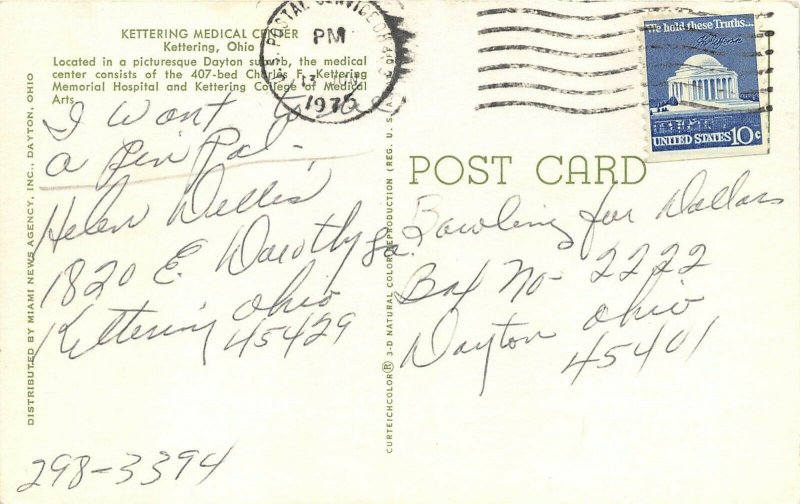 KETTERING MEDICAL CENTER
Kettering, Ohio
Located in a picturesque Dayton suburb, the medical
center consists of the 407-bed Charles F. Kettering
Memorial Hospital and Kettering College of Medical
Arts.
I want to
a Pin Pal -
Helen
1820 E. Dorothy La.
Kettering Ohio
45429
298-3394
DISTRIBUTED BY MIAMI NEWS AGENCY, INC., DAYTON, OHIO
U.S. POSTAL SERVICE
PM
13 JUN
1976
We hold these Truths...
UNITED STATES 10c
POST CARD
CURTEICHCOLOR® 3-D NATURAL COLOR REPRODUCTION (REG. U.S.A.
Bowling for Dollars
Box No- 2222
Dayton Ohio
45401